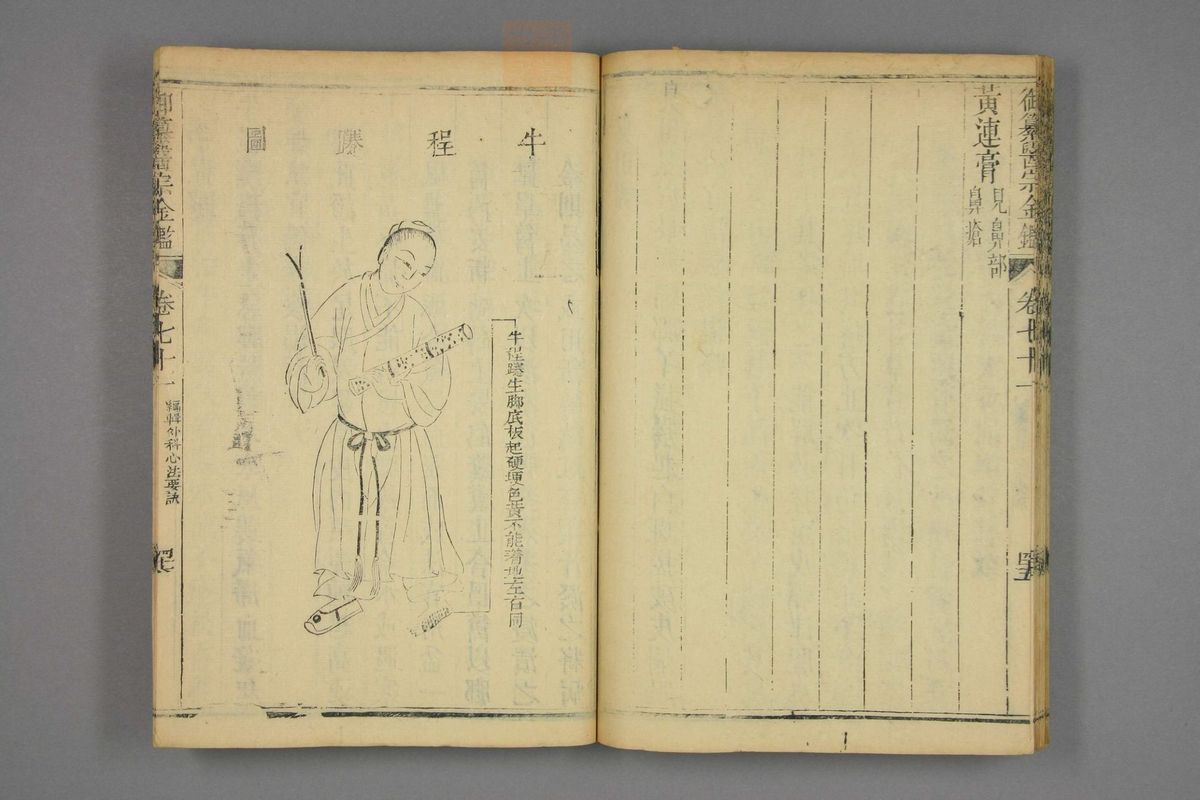 御纂醫宗金鑑
卷七十一
黃連膏
見鼻部
鼻瘡
牛程蹇圖
牛程蹇生脚底板起硬埂色黃不能着地左右同
御纂醫宗金鑑
卷七十一
編輯外科心法要訣